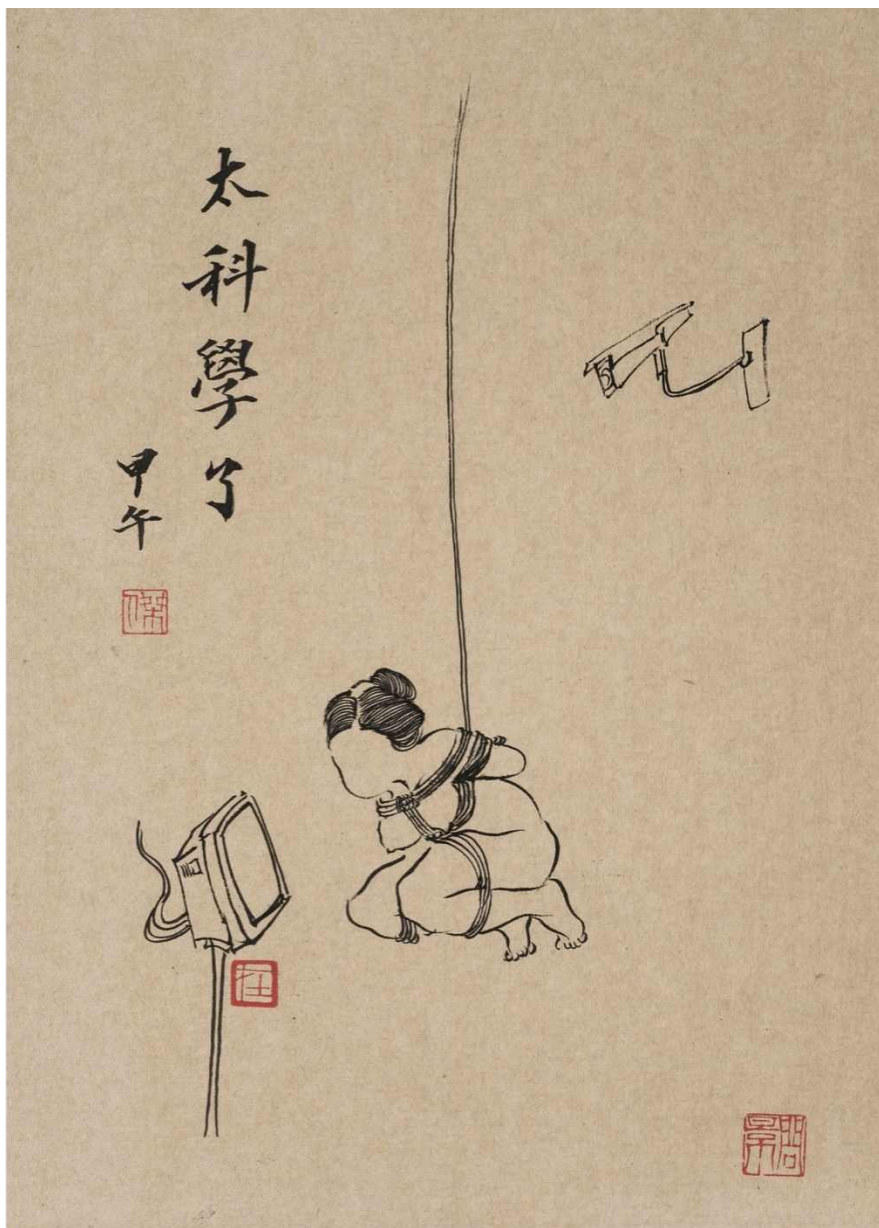 太科學了
甲午
傑